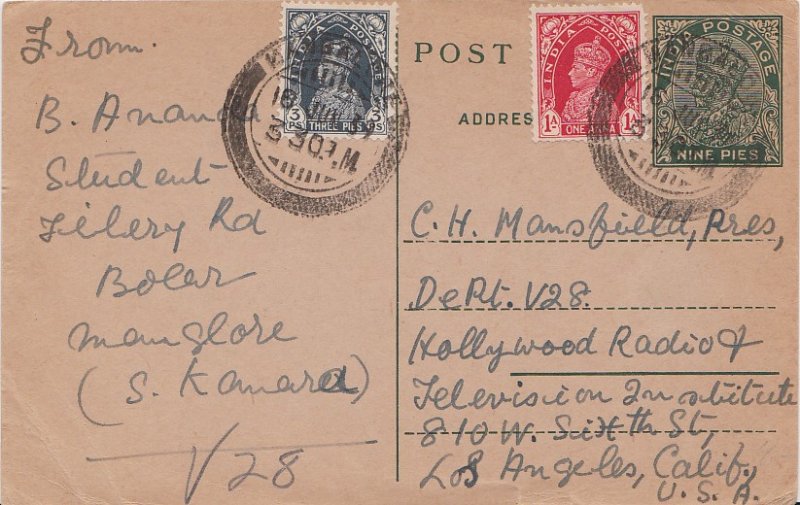 From.
B. Ananda
Student
Jilery Rd
Boler
Manglore
(S. Kanara)
V28
POST
ADDRES
INDIA POSTAGE
3 PS THREE PIES 3 PS
INDIA POSTAGE
1A ONE ANNA 1A
INDIA POSTAGE
NINE PIES
3 30 P.M
C. H. Mansfield, Pres,
Dept. V28.
Hollywood Radio &
Television Institute
810 W. Sixth St,
Los Angeles, Calif,
U. S. A.